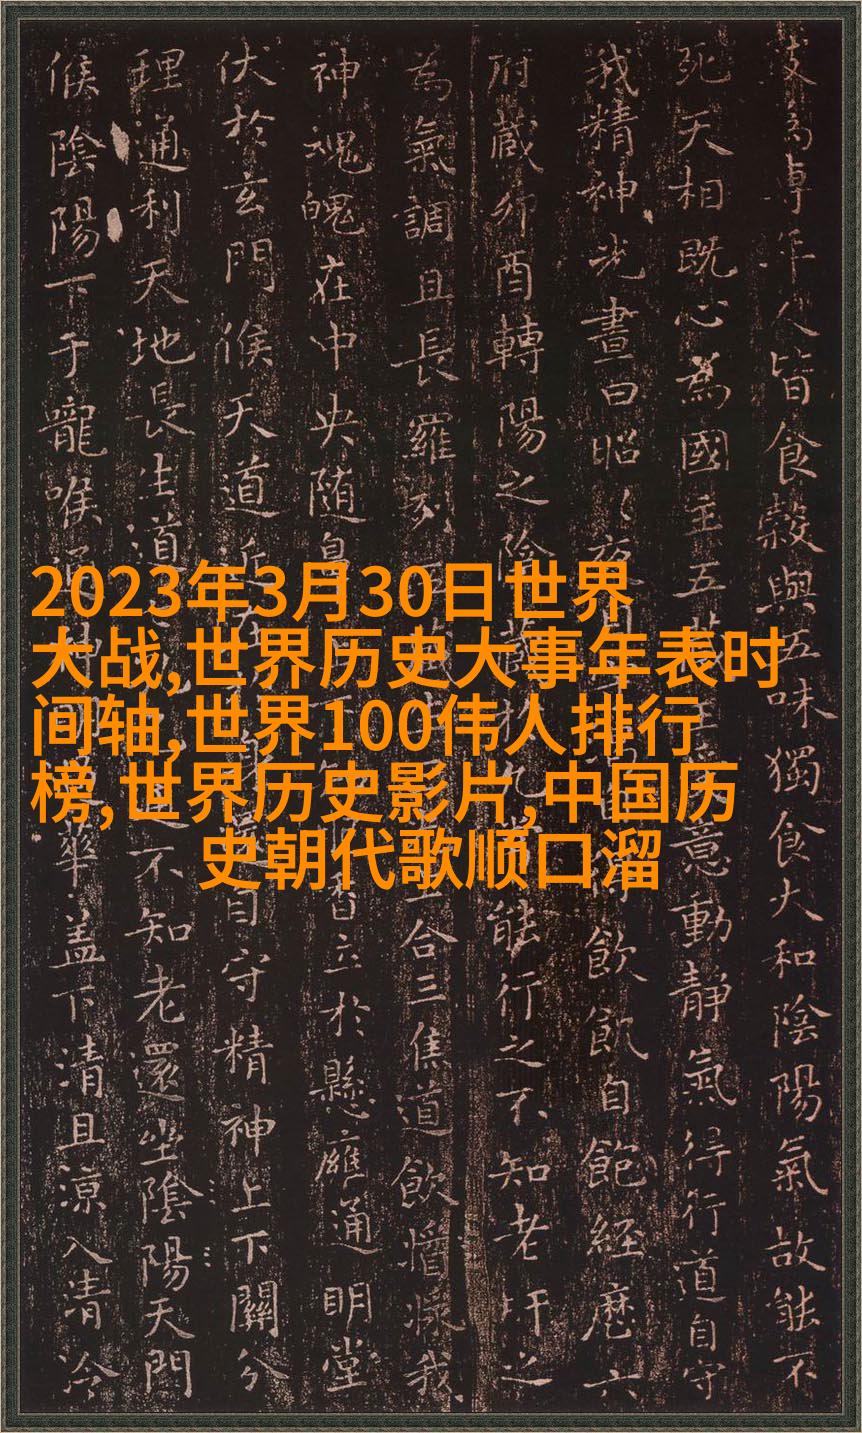 2023年3月30日世界
大战,世界历史大事年表时
间轴,世界100伟人排行
榜,世界历史影片,中国历
史朝代歌顺口溜
人皆食穀與五味獨食大和陰陽氣故能不
死天相既心為國主五意動靜氣得行道自守
我精神光晝日昭〻夜得飲飢自飽經歷六
府藏卯酉轉陽之陰能行之不知老肝之
為氣調且長羅列合三焦道飲醬漿我
神魂魄在中央随鼻香立於懸膺通明堂
伏於玄門候天道近自守精神上下關分
理通利天地長生道不知老還坐陰陽天門
候陰陽下于嚨喉華蓋下清且涼入清泠